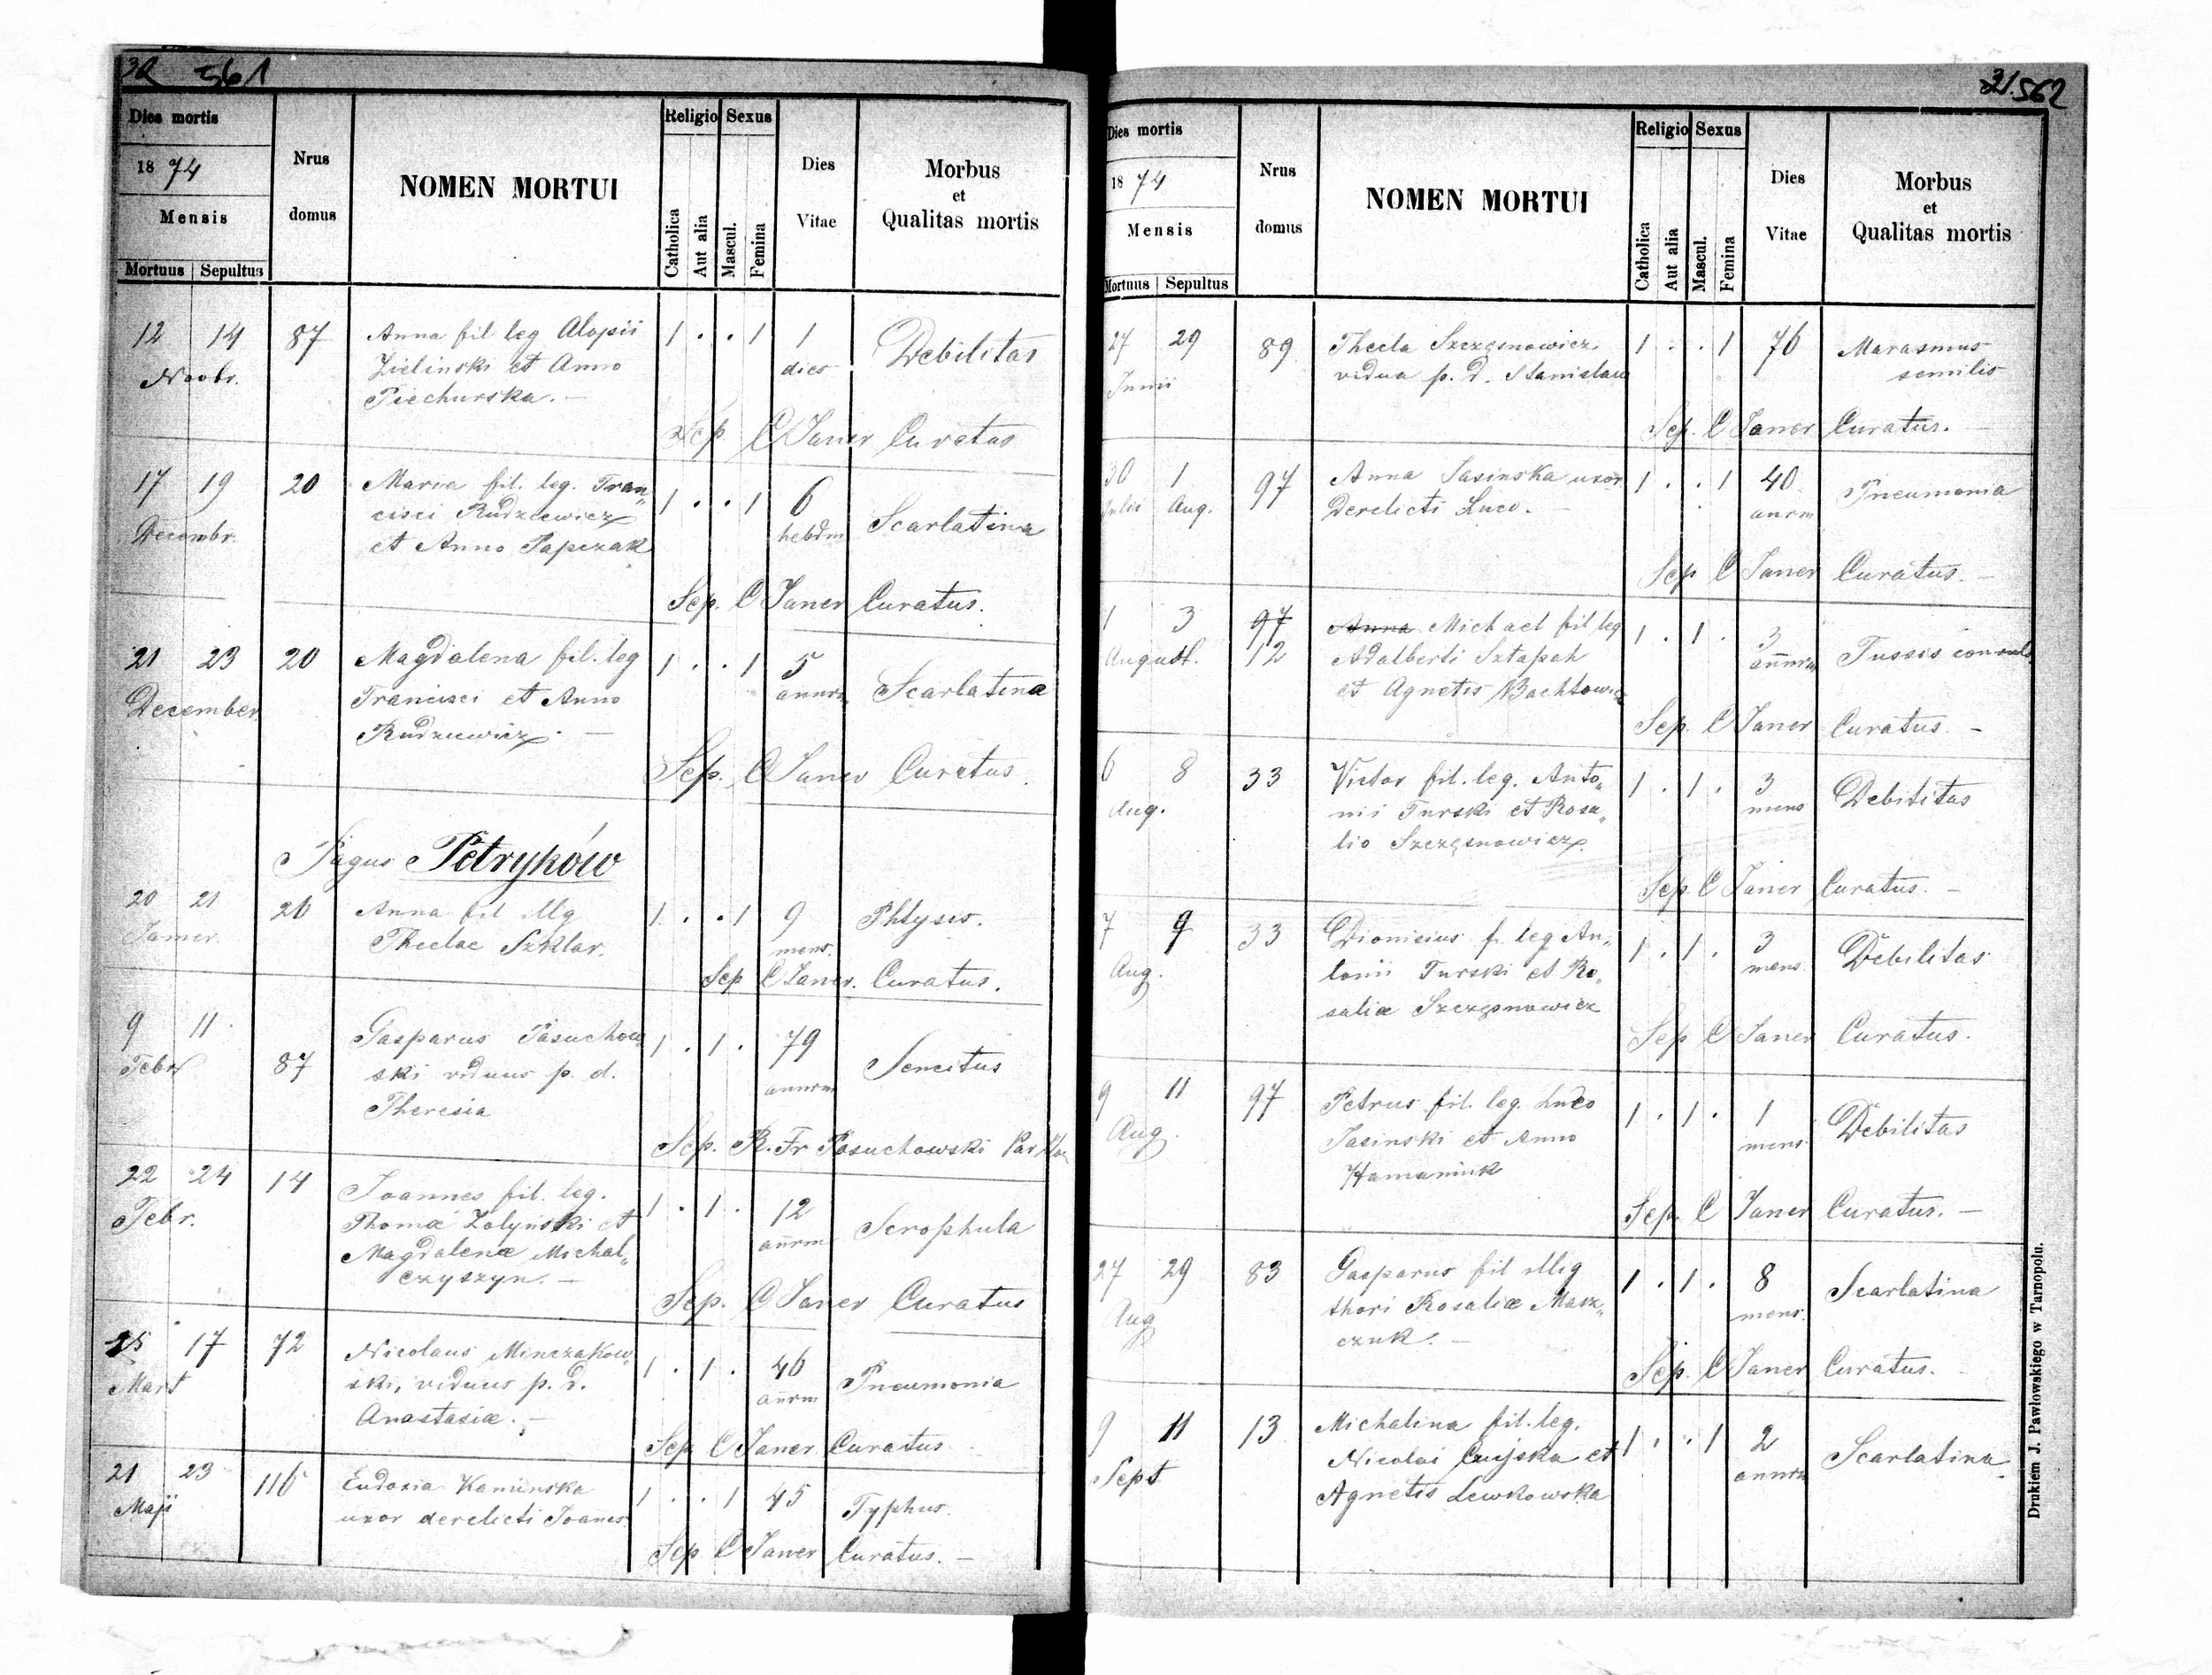 32 561
Dies mortis
1874
Mensis
Mortuus Sepultus
Nrus domus
NOMEN MORTUI
Religio Sexus
Catholica Aut alia Mascul. Femina
Dies Vitae
Morbus et Qualitas mortis
12 14 87 Anna fil leg Aloysii 1 . . 1 1 Debilitas
Novbr. Zielinski et Anno dies
Piechurska. —
Sep C Janer Curatus
17 19 20 Maria fil. leg. Fran„ 1 . . 1 6 Scarlatina
Decembr. cisci Rudzcewicz hebdm
et Anno Papczak
Sep. C Janer Curatus.
21 23 20 Magdalena fil. leg 1 . . 1 5 Scarlatina
December Francisci et Anno annrm
Rudzcewicz. —
Sep. C Janer Curatus.
Pagus Petryków
20 21 26 Anna fil illg 1 . . 1 9 Phtysis.
Janner. Theclae Szklar. mens.
Sep C Janer. Curatus.
9 11 Gasparus Pasuchow 1 . 1 . 79 Senectus
Febr 87 ski viduus p. d. annrm
Theresia
Sep. R. Fr Pasuchowski
22 24 14 Joannes fil. leg. 1 . 1 . 12 Scrophula
Febr. Thomæ Zolyński et añrm
Magdalenæ Michal„
czyszyn. —
Sep. C Janer Curatus
15 17 72 Nicolaus Minczakow 1 . 1 . 46 Pneumonia
Mart ski, viduus p. d. añrm
Anastasiæ. —
Sep C Janer Curatus
21 23 116 Eudoxia Kaminska 1 . . 1 45 Typhus.
Maji uxor derelicti Joanes
Sep C Janer Curatus. —
31. 562
Dies mortis
1874
Mensis
Mortuus Sepultus
Nrus domus
NOMEN MORTUI
Religio Sexus
Catholica Aut alia Mascul. Femina
Dies Vitae
Morbus et Qualitas mortis
27 29 89 Thecla Szczęsnowicz 1 . . 1 76 Marasmus
Junii vidua p. d. Stanislau senilis
Sep. C Janer Curatus. —
30 1 97 Anna Jasinska uxor 1 . . 1 40 Pneumonia
Julii Aug. Derelicti Luco. — anrm
Sep C Janer Curatus. —
1 3 97 Anna Michael fil leg 1 . 1 . 3 Tussis
August. 12 Adalberti Sztapeh añnrm
et Agnetis Bachtowicz
Sep. C Janer Curatus. —
6 8 33 Victor fil. leg. Anto„ 1 . 1 . 3 Debilitas
Aug. nii Turski et Rosa„ mens
lio Szczęsnowicz
Sep C Janer Curatus. —
7 9 33 Dionisius f. leg An„ 1 . 1 . 3 Debilitas
Aug. tonii Turski et Ro„ mens
saliæ Szczęsnowicz
Sep C Janer Curatus.
9 11 97 Petrus fil. leg. Luco 1 . 1 . 1 Debilitas
Aug. Jasinski et Anno mens
Hamaniuk
Sep. C Janer Curatus. —
27 29 83 Gasparus fil illig 1 . 1 . 8 Scarlatina
Aug thori Rosaliæ Masz„ mens.
czuk. —
Sep. C Janer Curatus. —
9 11 13 Michalina fil. leg. 1 . . 1 2 Scarlatina
Sept Nicolai Cujska et annrm
Agnetis Lewkowska
Drukiem J. Pawłowskiego w Tarnopolu.